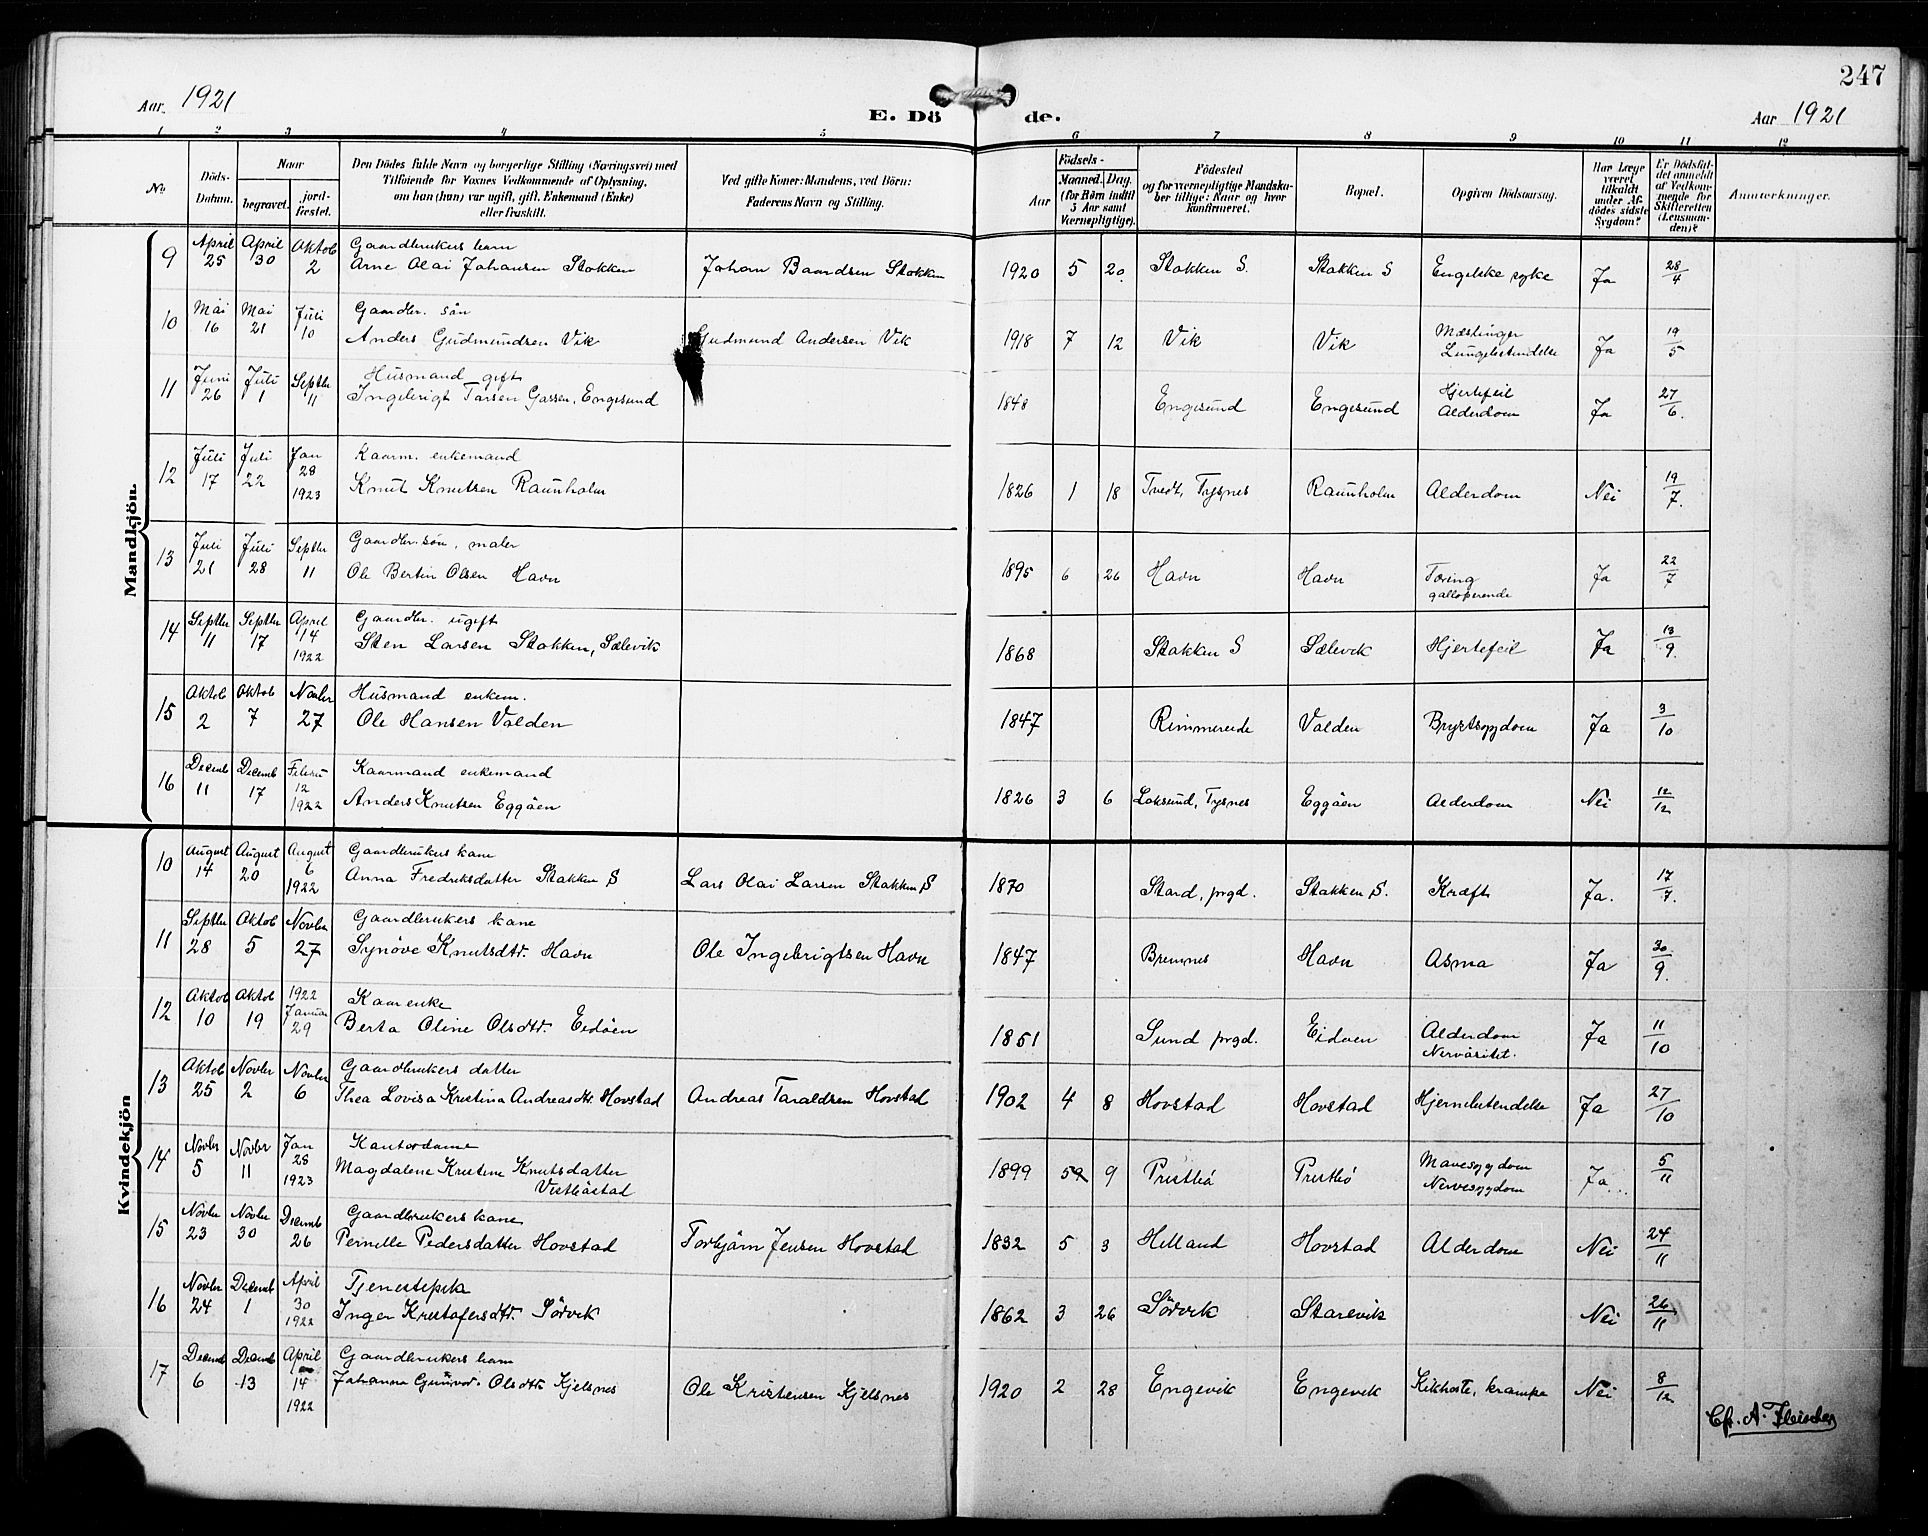 247
Aar 1921
E. Dö de.
Aar 1921
1 2 3 4 5 6 7 8 9 10 11 12
No
Döds-Datum.
Naar
begravet.
jord-fæstet.
Den Dödes fulde Navn og borgerlige Stilling (Næringsvei) med
Tilföiende for Voxnes Vedkommende af Oplysning,
om han (hun) var ugift, gift, Enkemand (Enke)
eller fraskilt.
Ved gifte Koner: Mandens, ved Börn:
Faderens Navn og Stilling.
Födsels-
Aar
Maaned. Dag.
(for Börn indtil
5 Aar samt
Værnepligtige).
Födested
og for værnepligtige Mandska-
ber tillige: Naar og hvor
konfirmeret.
Bopæl.
Opgiven Dödsaarsag.
Har Læge
været
tilkaldt
under Af-
dödes sidste
Sygdom?
Er Dödsfal-
det anmeldt
af Vedkom-
mende for
Skifteretten
(Lensman-
den)?
Anmærkninger.
Mandkjön.
9 April 25 April 30 Oktob 2 Gaardbrukers barn
Arne Olai Johansen Stokken Johan Baardsen Stokken 1920 5 20 Stokken S. Stokken S Engelske syke Ja 28/4
10 Mai 16 Mai 21 Juli 10 Gaardbr. sön
Anders Gudmundsen Vik Gudmund Andersen Vik 1918 7 12 Vik Vik Mæslinger
Lungebetendelse Ja 19/5
11 Juni 26 Juli 1 Septbr 11 Husmand gift
Ingebrigt Larsen Engesund 1848 Engesund Engesund Hjertefeil
Alderdom Ja 27/6.
12 Juli 17 Juli 22 Jan 28 1923 Kaarm. enkemand
Knut Knutsen Raunholm 1826 1 18 Tvedt, Tysnes Raunholm Alderdom Nei 19/7.
13 Juli 21 Juli 28 Septbr 11 Gaardbr. sön, maler
Ole Bertin Olsen Havn 1895 6 26 Havn Havn Tæring
galloperende Ja 22/7
14 Septbr 11 Septbr 17 April 14 1922 Gaardbr. ugift
Sten Larsen Stokken, Sælevik 1868 Stokken S Sælevik Hjertefeil Ja 13/9.
15 Oktob 2 Oktob 7 Novbr 27 Husmand enkem.
Ole Hansen Valden 1847 Rimmereide Valden Brystsygdom Ja 3/10
16 Decemb 11 Decemb 17 Februr 12 1922 Kaarmand enkemand
Anders Knutsen Eggöen 1826 3 6 Loksund, Tysnes Eggöen Alderdom Nei 12/12
Kvindekjön
10 August 14 August 20 August 6 1922 Gaardbrukers kone
Anna Fredriksdatter Stokken S Lars Olai Larsen Stokken S 1870 Stord, prgd. Stokken S. Kræft Ja. 17/7.
11 Septbr 28 Oktob 5 Novbr 27 Gaardbrukers kone
Synöve Knutsdtr. Havn Ole Ingebrigtsen Havn 1847 Bremnes Havn Asma Ja 30/9.
12 Oktob 10 Oktob 19 1922 Januar 29 Kaarenke
Berta Oline Olsdtr. Eidöen 1851 Sund prgd. Eidöen Alderdom
Nervösitet. Ja 11/10
13 Oktob 25 Novbr 2 Novbr 6 Gaardbrukers datter
Thea Lovisa Kristina Andreasdtr. Hovstad Andreas Taraldsen Hovstad 1902 4 8 Hovstad Hovstad Hjernebetendelse Ja 27/10
14 Novbr 5 Novbr 11 Jan 28 1923 Kontordame
Magdalene Kristine Knutsdatter
Vestböstad 1899 9 Prestbö Prestbö Mavesygdom
Nervesygdom Ja 5/11
15 Novbr 23 Novbr 30 Decemb 26 Gaardbrukers kone
Pernille Pedersdatter Hovstad Torbjörn Jensen Hovstad 1832 5 3 Helland Hovstad Alderdom Nei 24/11
16 Novbr 24 Decemb 1 April 30 1922 Tjenestepike
Inger Kristofersdtr. Sörvik 1862 3 26 Sörvik Starevik Nei 26/11
17 Decemb 6 Decemb 13 April 14 1922 Gaardbrukers barn
Johanna Gunvor Olsdtr. Kjelsnes Ole Kristensen Kjelsnes 1920 2 28 Engevik Engevik Kikhoste, krampe Nei 8/12
Chr. A. Fleischer